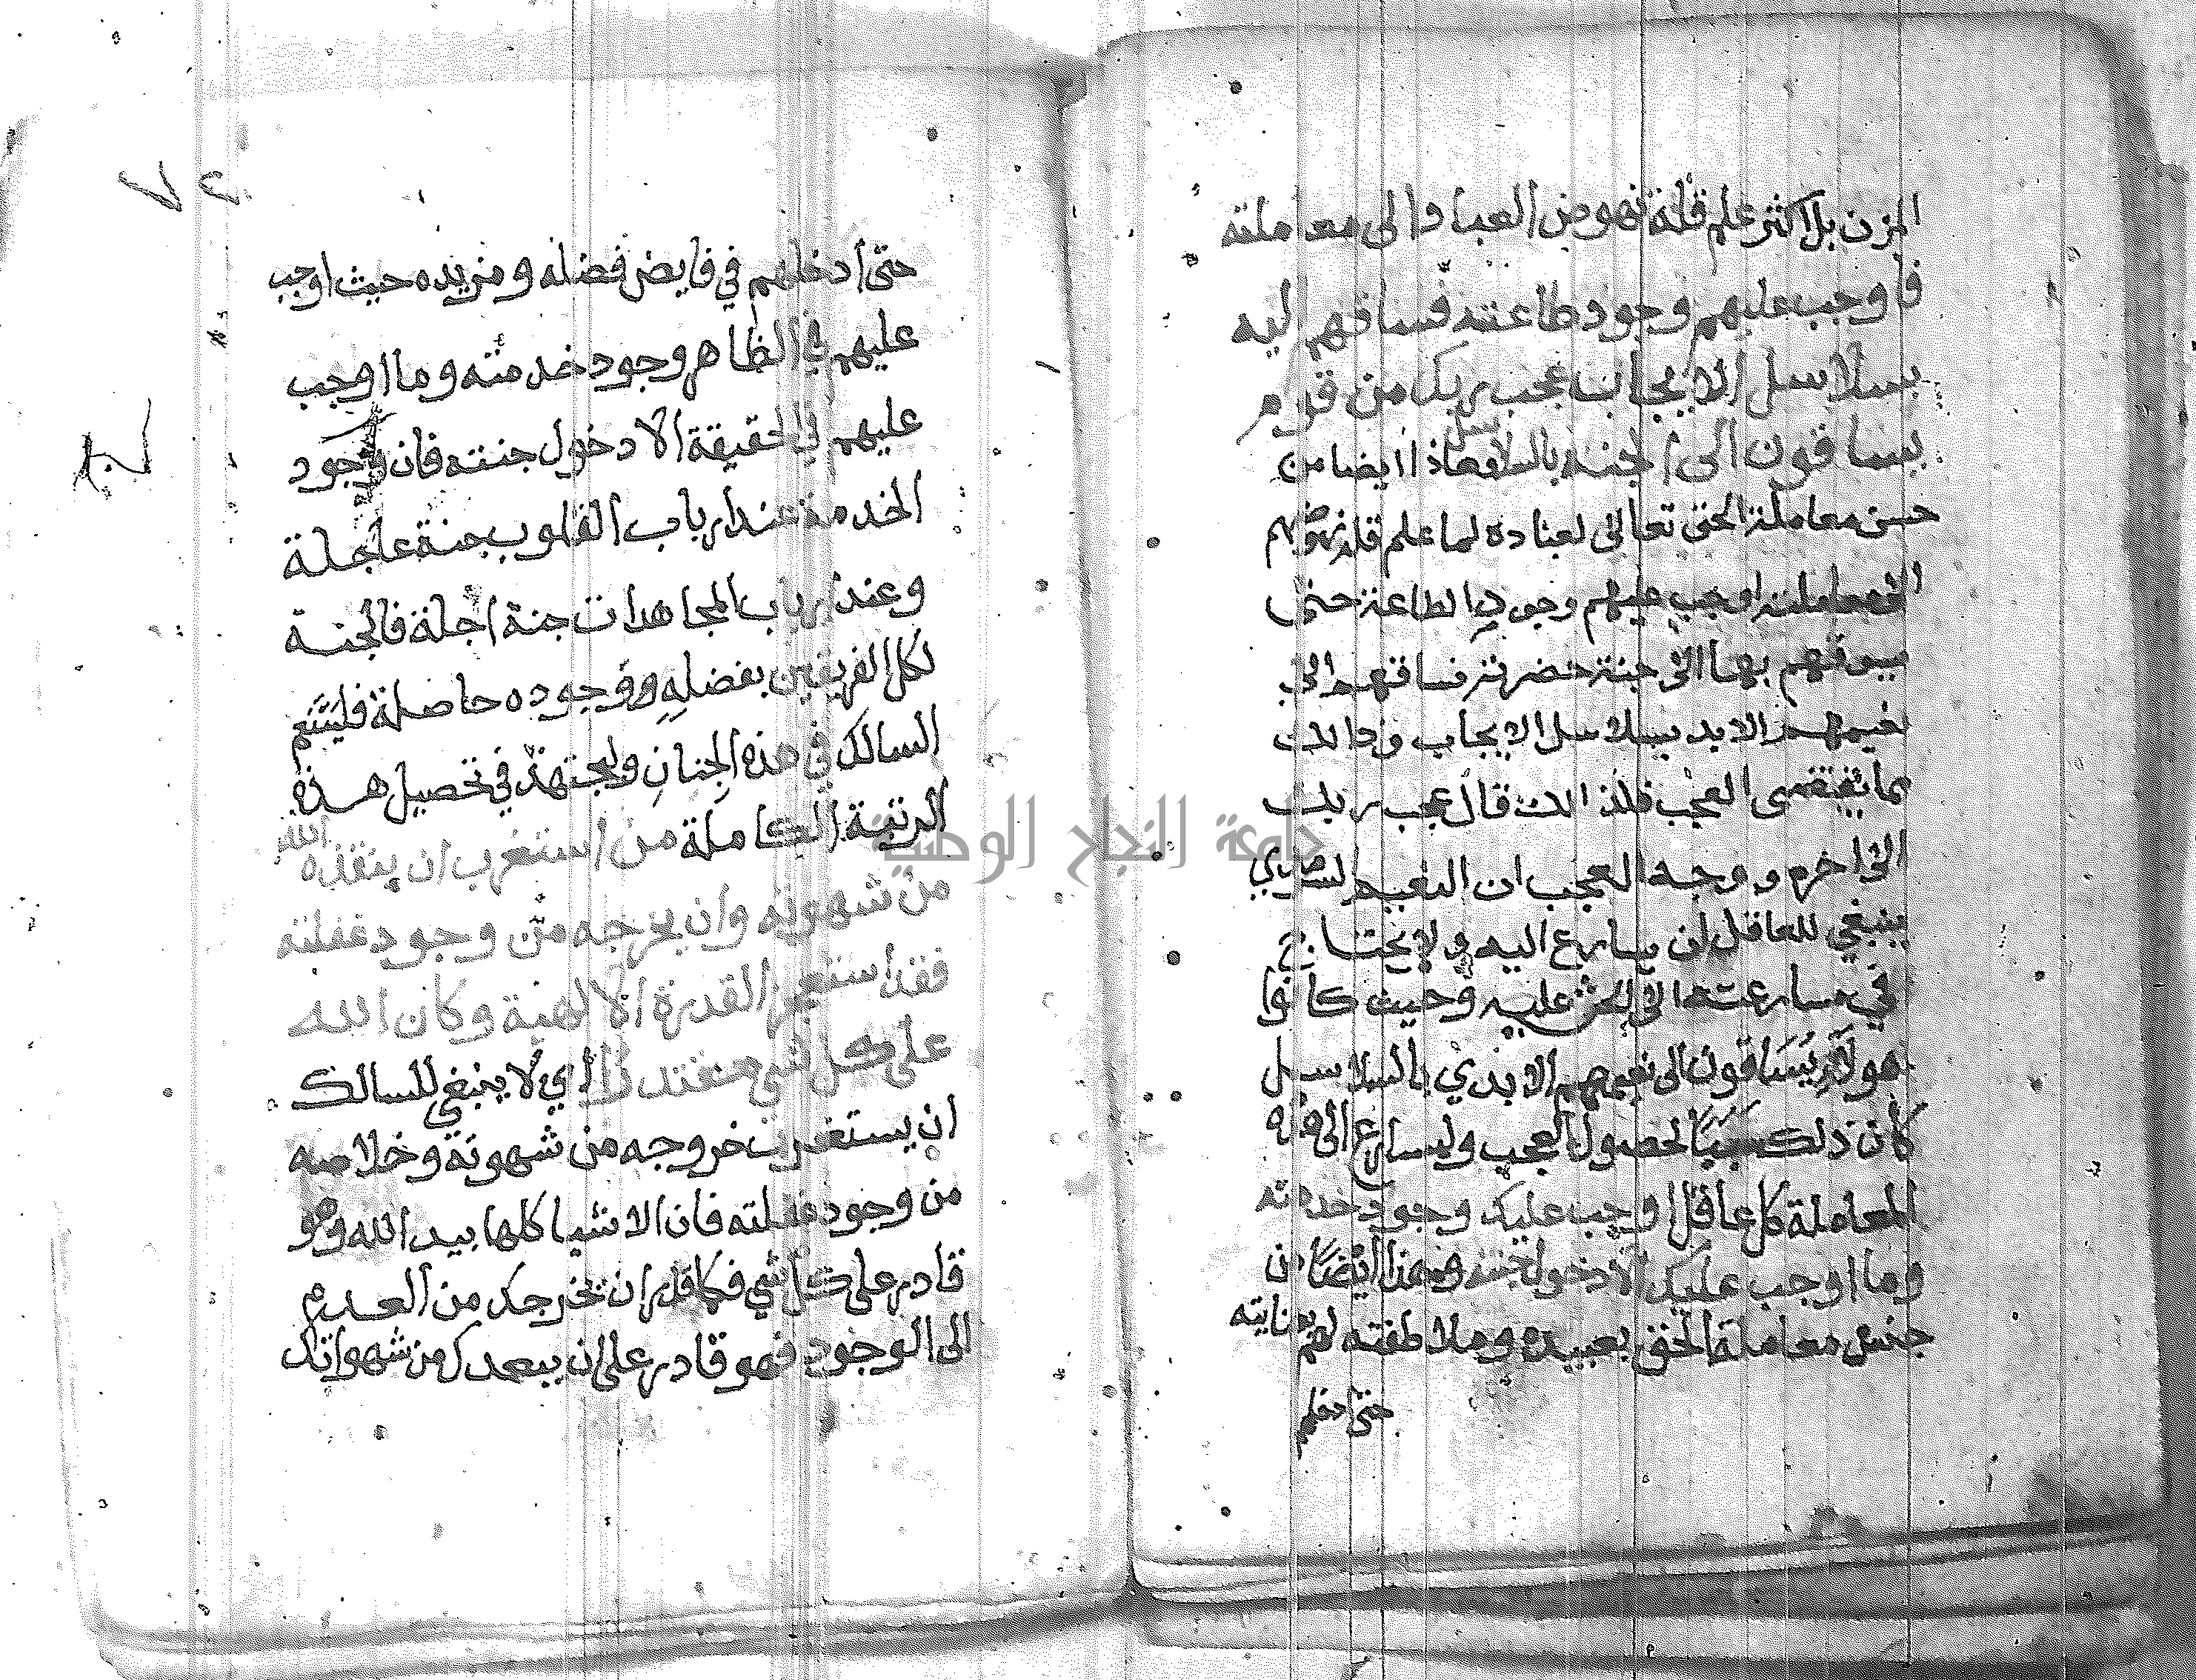 المزن بل اكثر علم قلة نهوض العباد الى معاملته
فاوجب عليهم وجود طاعته فساقهم اليه
بسلاسل الايجاب عجب ربك من قوم
يساقون الى الجنة بالسلاسل هذا ايضا من
حسن معاملة الحق تعالى لعباده لما علم قلة نهوضهم
الى معاملته اوجب عليهم وجود الطاعة حتى
يسوقهم بها الى جنة حضرته فساقهم الى
نعيمهم الابد بسلاسل الايجاب وذالك
مما يقتضى العجب فلذالك قال عجب ربك
الى اخره ووجه العجب ان النعيم السرمدي
ينبغي للعاقل ان يسارع اليه ولا يحتاج
في مسارعته الى الحث عليه وحيث كانوا
هولاء يساقون الى نعيمهم الابدي بالسلاسل
كان ذلك سببا لحصول العجب وليسارع الى هذه
المعاملة كل عاقل اوجب عليك وجود خدمته
وما اوجب عليك الا دخول جنته وهذا ايضا من
جنس معاملة الحق بعبيده وملاطفته لهم بعنايته
حتى ادخلهم
٧٤
حتى ادخلهم في فايض فضله ومزيده حيث اوجب
عليهم في الظاهر وجود خدمته وما اوجب
عليهم في الحقيقة الا دخول جنته فان وجود
الخدمة عند ارباب القلوب جنة عاجلة
وعند ارباب المجاهدات جنة اجلة فالجنة
لكل الفريقين بفضله ووجوده حاصلة فليتنعم
السالك في هذه الجنان وليجتهد في تحصيل هذه
الرتبة الكاملة من استغرب ان ينقذه الله
من شهوته وان يخرجه من وجود غفلته
فقد استعجز القدرة الالهية وكان الله
على كل شي مقتدرا اي لا ينبغي للسالك
ان يستغرب خروجه من شهوته وخلاصه
من وجود غفلته فان الاشيا كلها بيد الله وهو
قادر على كل شي فكما قدر ان يخرجك من العدم
الى الوجود فهو قادر على ان يبعدك من شهواتك
جامعة النجاح الوطنية